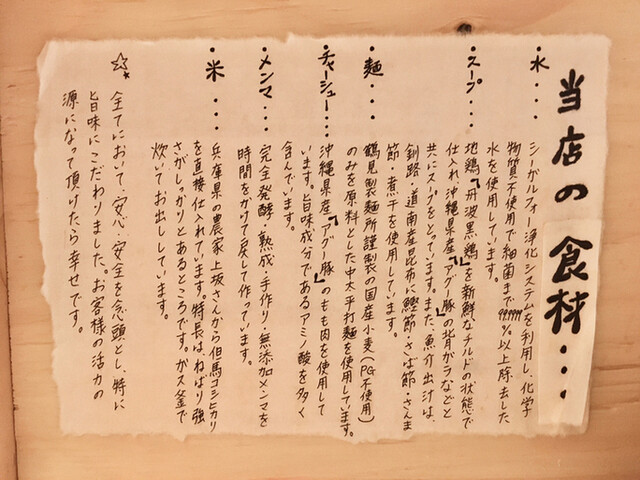 当店の食材・・・
・水・・・
シーガルフォー浄化システムを利用し、化学
物質不使用で細菌まで99.9999%以上除去した
水を使用しています。
・スープ・・・
地鶏『丹波黒鶏』を新鮮なチルドの状態で
仕入れ沖縄県産『アグー豚』の背ガラなどと
共にスープをとっています。また、魚介出汁は、
釧路・道南産昆布に鰹節・さば節・さんま
節・煮干を使用しています。
・麺・・・
鶴見製麺所謹製の国産小麦(PG不使用)
のみを原料とした中太平打麺を使用しています。
・チャーシュー・・・
沖縄県産『アグー豚』のもも肉を使用して
います。旨味成分であるアミノ酸を多く
含んでいます。
・メンマ・・・
完全発酵・熟成・手作り・無添加メンマを
時間をかけて戻して作っています。
・米・・・
兵庫県の農家上坂さんから但馬コシヒカリ
を直接仕入れています。特長は、ねばり強
さがしっかりとあるところです。ガス釜で
炊いてお出ししています。
☆全てにおいて、安心・安全を念頭とし、特に
旨味にこだわりました。お客様の活力の
源になって頂けたら幸せです。